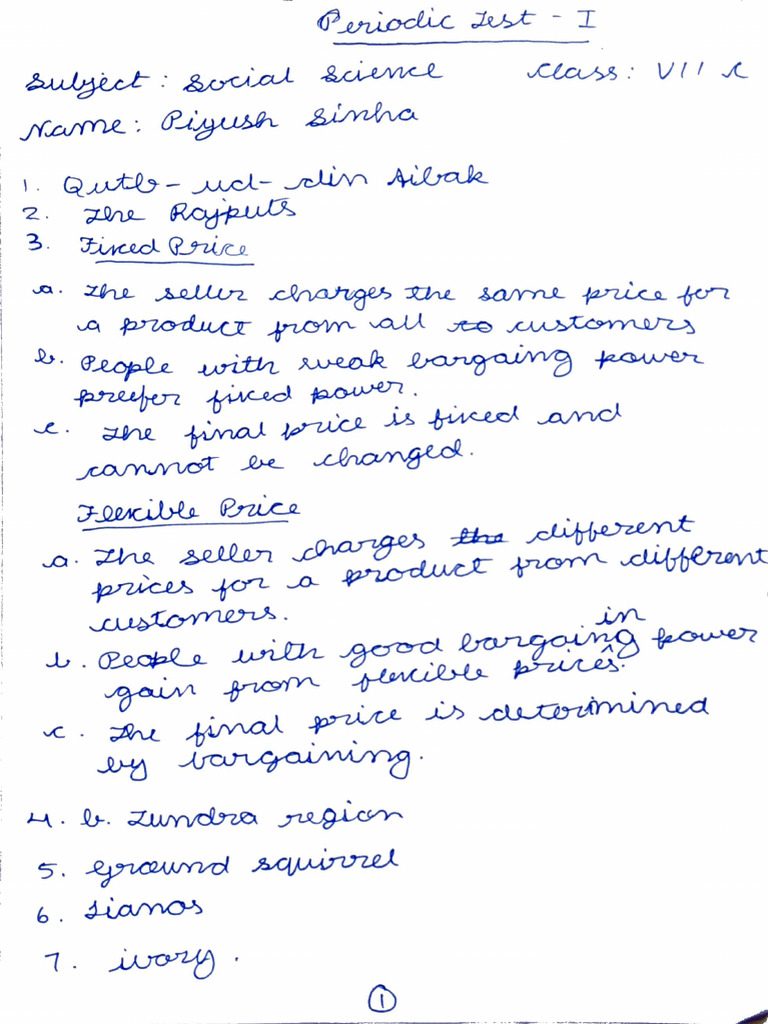 Periodic Test - I
Subject: Social Science Class: VII C
Name: Piyush Sinha
1. Qutb-ud-din Aibak
2. The Rajputs
3. Fixed Price
a. The seller charges the same price for
a product from all to customers
b. People with weak bargaing power
preefer fixed power.
c. The final price is fixed and
cannot be changed.
Flexible Price
a. The seller charges the different
prices for a product from different
customers.
b. People with good bargaining power
gain from flexible prices.
c. The final price is determined
by bargaining.
4. b. Tundra region
5. Ground squirrel
6. Lianos
7. ivory.
1